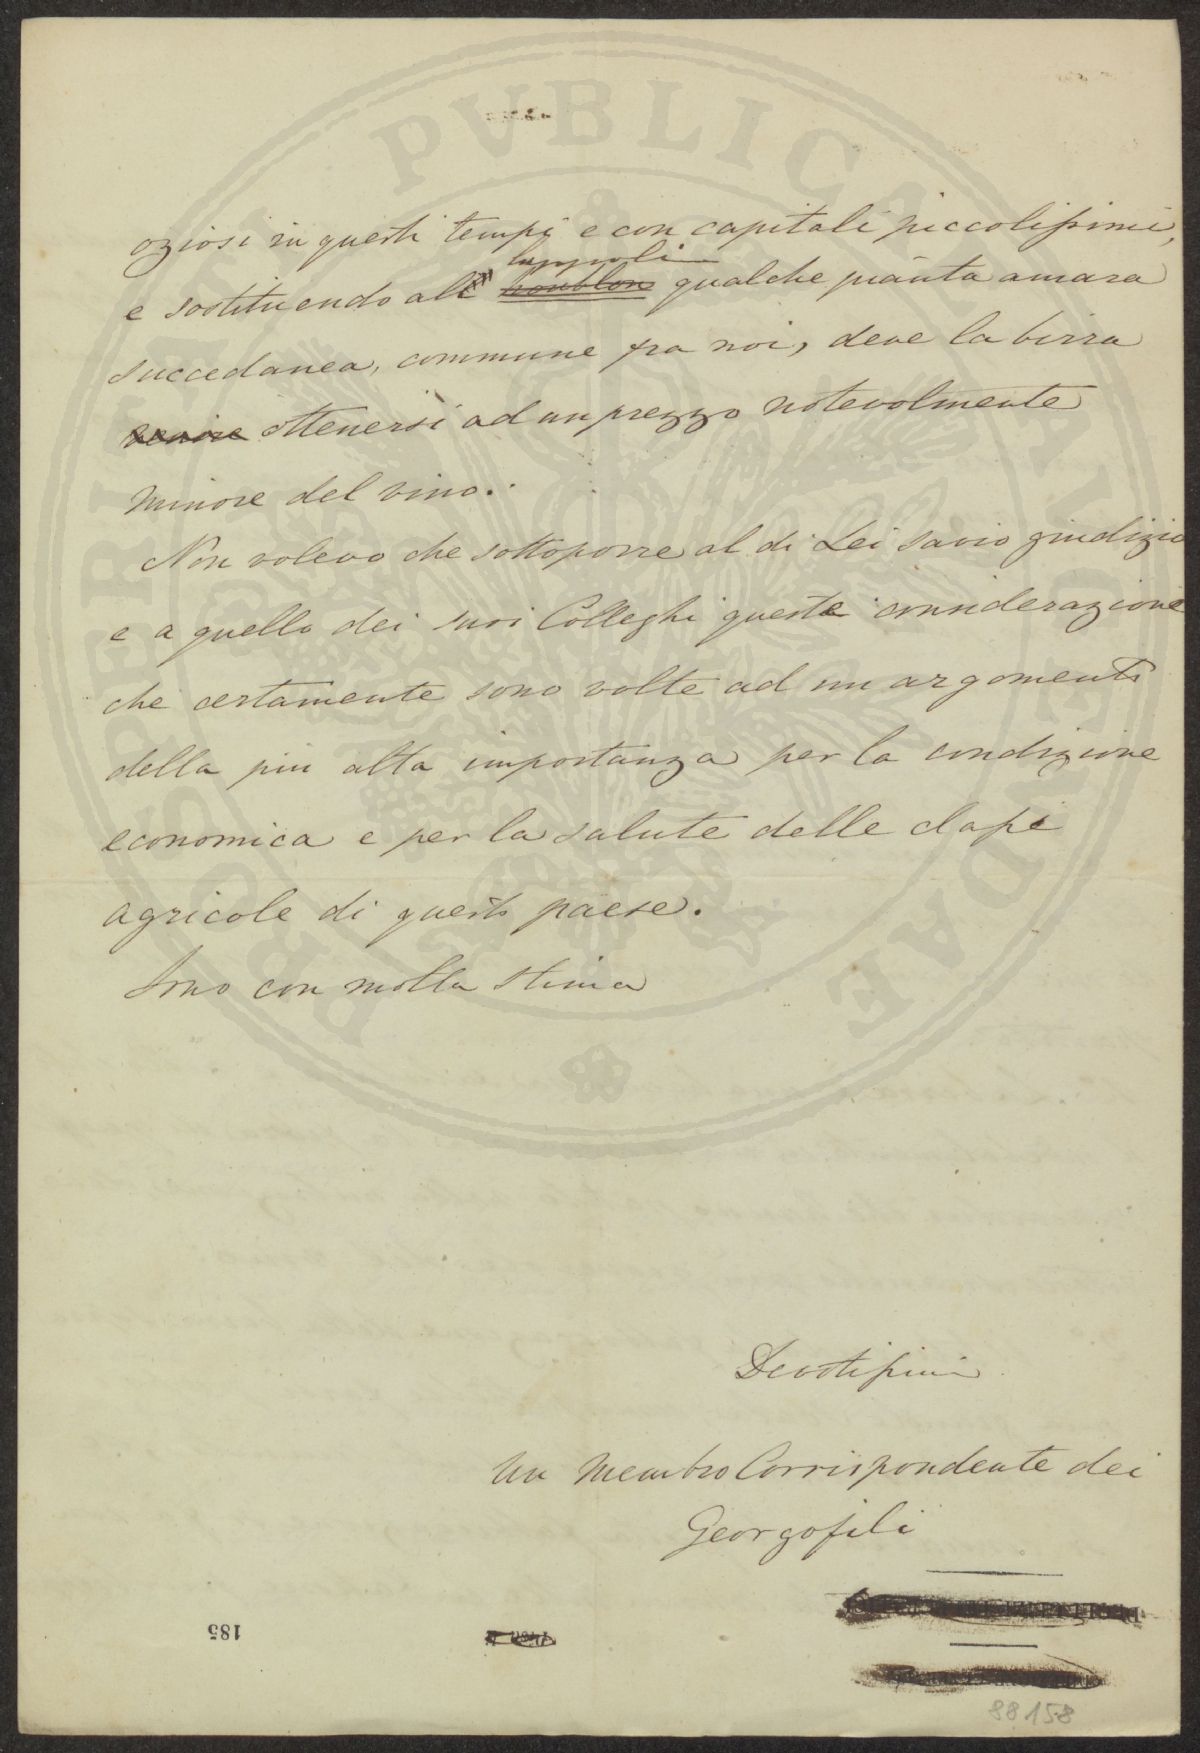 PROSPERITATI PVBLICAE AVGENDAE
oziosi in questi tempi e con capitali piccolissimi,
luppoli
e sostituendo al houblon qualche pianta amara
succedanea, commune fra noi, deve la birra
venire ottenersi ad un prezzo notevolmente
minore del vino.
Non volevo che sottoporre al di Lei savio giudizio
e a quello dei suoi Colleghi queste considerazione
che certamente sono volte ad un argomento
della piu alta importanza per la condizione
economica e per la salute delle classi
agricole di questo paese.
Sono con molta stima
Devotissimo
Un Membro Corrispondente dei
Georgofili
185
88158